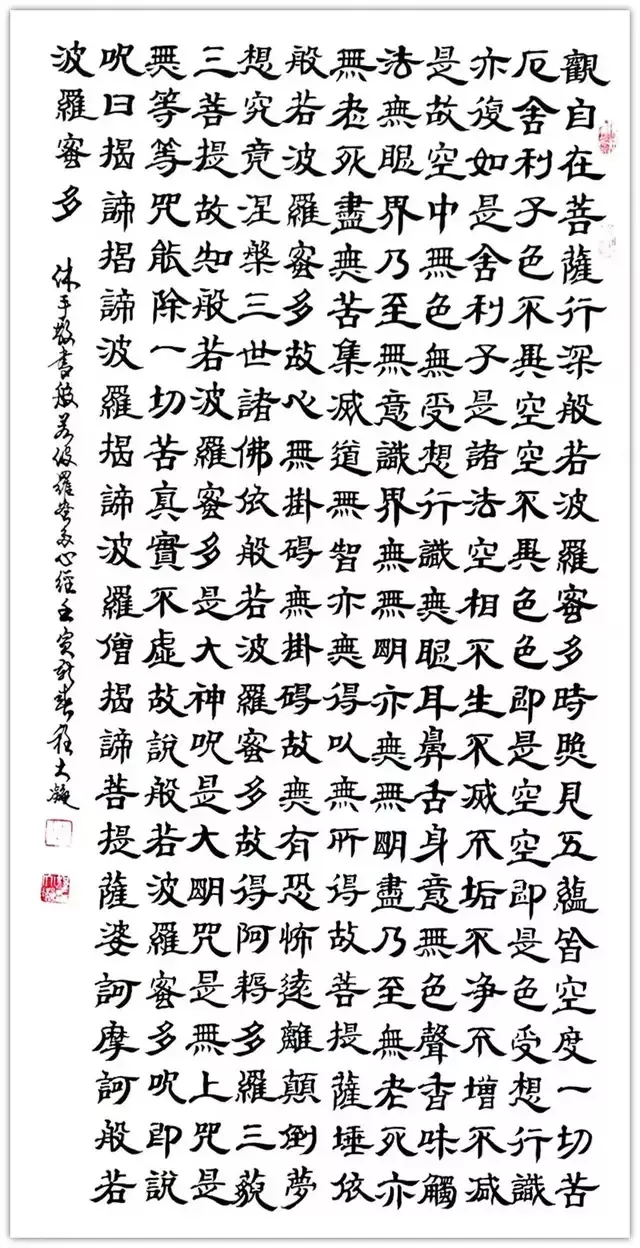 觀自在菩薩行深般若波羅蜜多時照見五蘊皆空度一切苦
厄舍利子色不異空空不異色色即是空空即是色受想行識
亦復如是舍利子是諸法空相不生不滅不垢不净不增不减
是故空中無色無受想行識無眼耳鼻舌身意無色聲香味觸
法無眼界乃至無意識界無無明亦無無明盡乃至無老死亦
無老死盡無苦集滅道無智亦無得以無所得故菩提薩埵依
般若波羅蜜多故心無掛碍無掛碍故無有恐怖遠離顛倒夢
想究竟涅槃三世諸佛依般若波羅蜜多故得阿耨多羅三藐
三菩提故知般若波羅蜜多是大神咒是大明咒是無上咒是
無等等咒能除一切苦真實不虛故說般若波羅蜜多咒即說
咒曰揭諦揭諦波羅揭諦波羅僧揭諦菩提薩婆訶摩訶般若
波羅蜜多
沐手敬書般若波羅蜜多心經壬寅新春程大